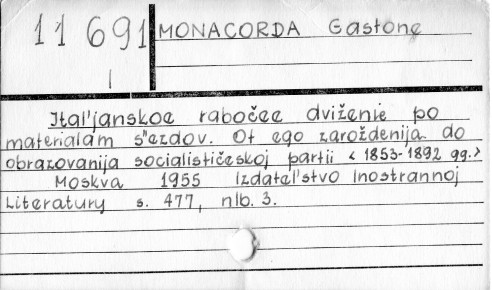 11 691
I
MONACORDA Gastone
Ital'janskoe rabočee dviženie po
materialam s"ezdov. Ot ego zaroždenija do
obrazovanija socialističeskoj partii < 1853-1892 gg.>
Moskva 1955 Izdatel'stvo Inostrannoj
Literatury s. 477, nlb. 3.